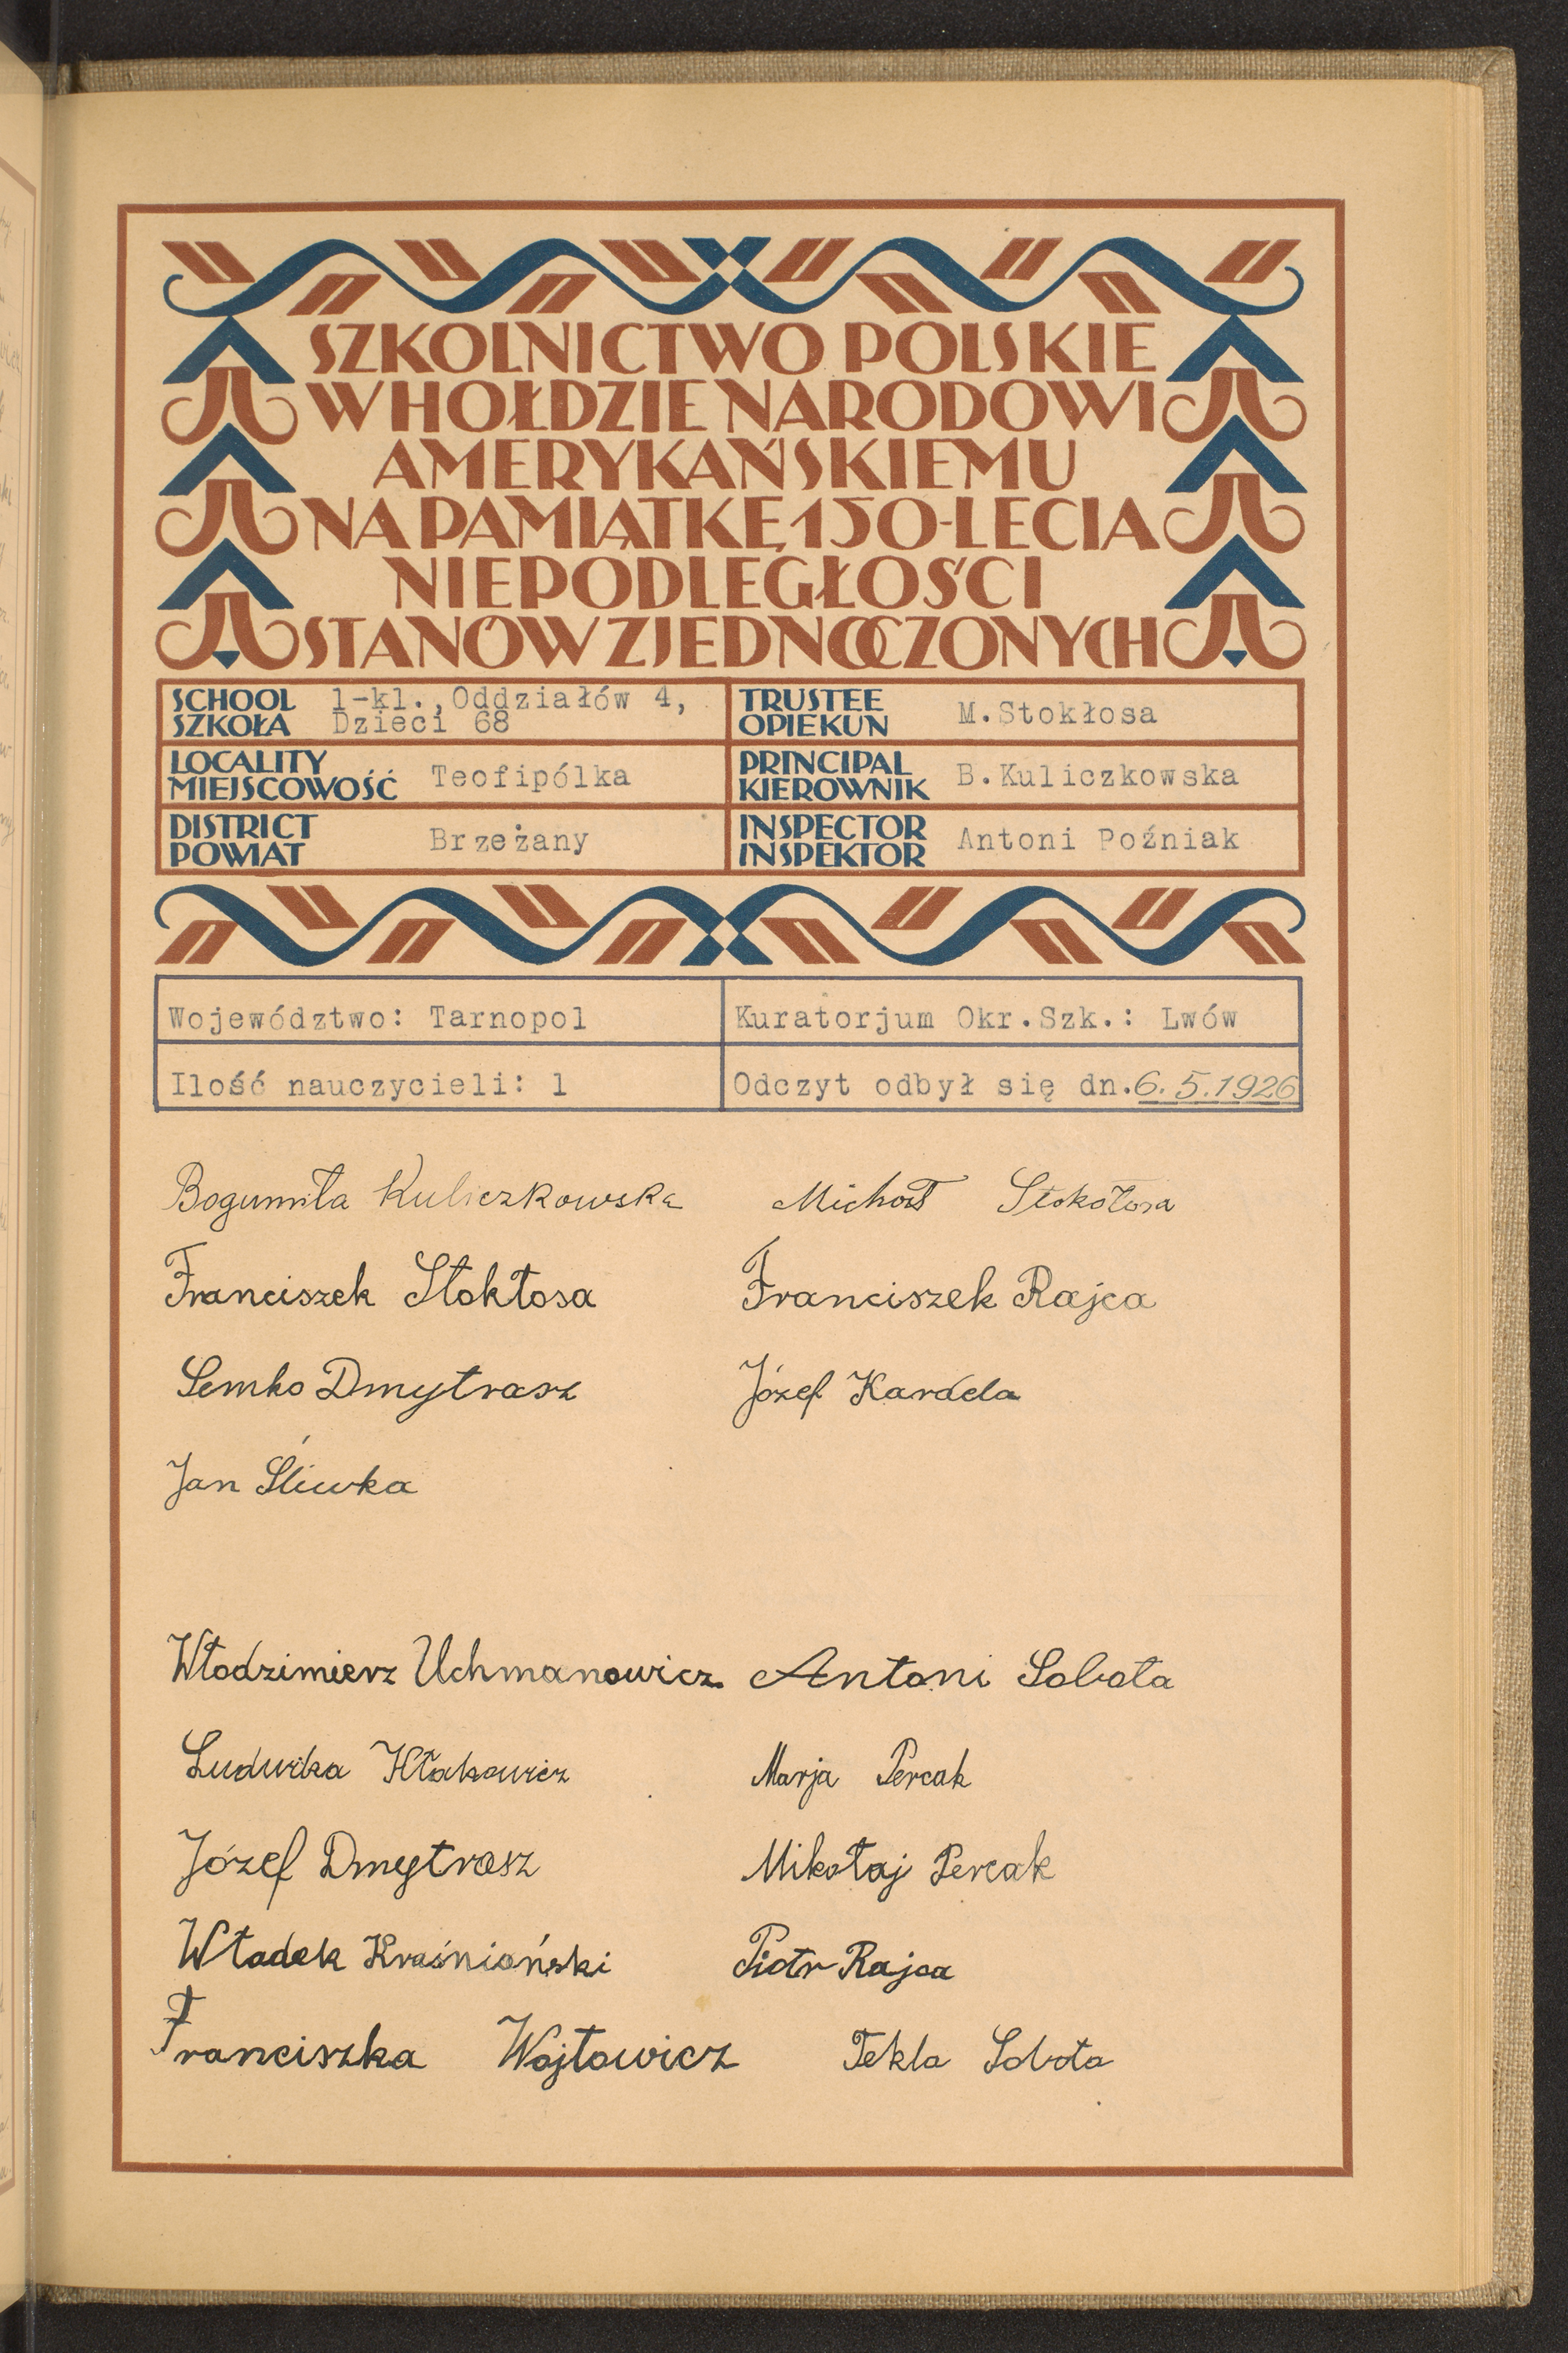 SZKOLNICTWO POLSKIE
W HOŁDZIE NARODOWI
AMERYKAŃSKIEMU
NA PAMIĄTKĘ 150-LECIA
NIEPODLEGŁOŚCI
STANÓW ZJEDNOCZONYCH
SCHOOL
SZKOŁA
1-kl., Oddziałów 4,
Dzieci 68
TRUSTEE
OPIEKUN
M.Stokłosa
LOCALITY
MIEJSCOWOŚĆ
Teofipólka
PRINCIPAL
KIEROWNIK
B.Kuliczkowska
DISTRICT
POWIAT
Brzeżany
INSPECTOR
INSPEKTOR
Antoni Poźniak
Województwo: Tarnopol
Kuratorjum Okr.Szk.: Lwów
Ilość nauczycieli: 1
Odczyt odbył się dn. 6.5.1926
Bogumiła Kuliczkowska Michał Stokłosa
Franciszek Stokłosa Franciszek Rajca
Semko Dmytrasz Józef Kardela
Jan Śliwka
Włodzimierz Uchmanowicz Antoni Sobota
Ludwika Kłakowicz Marja Percak
Józef Dmytrasz Mikołaj Percak
Władek Kraśniański Piotr Rajca
Franciszka Wojtowicz Tekla Sobota